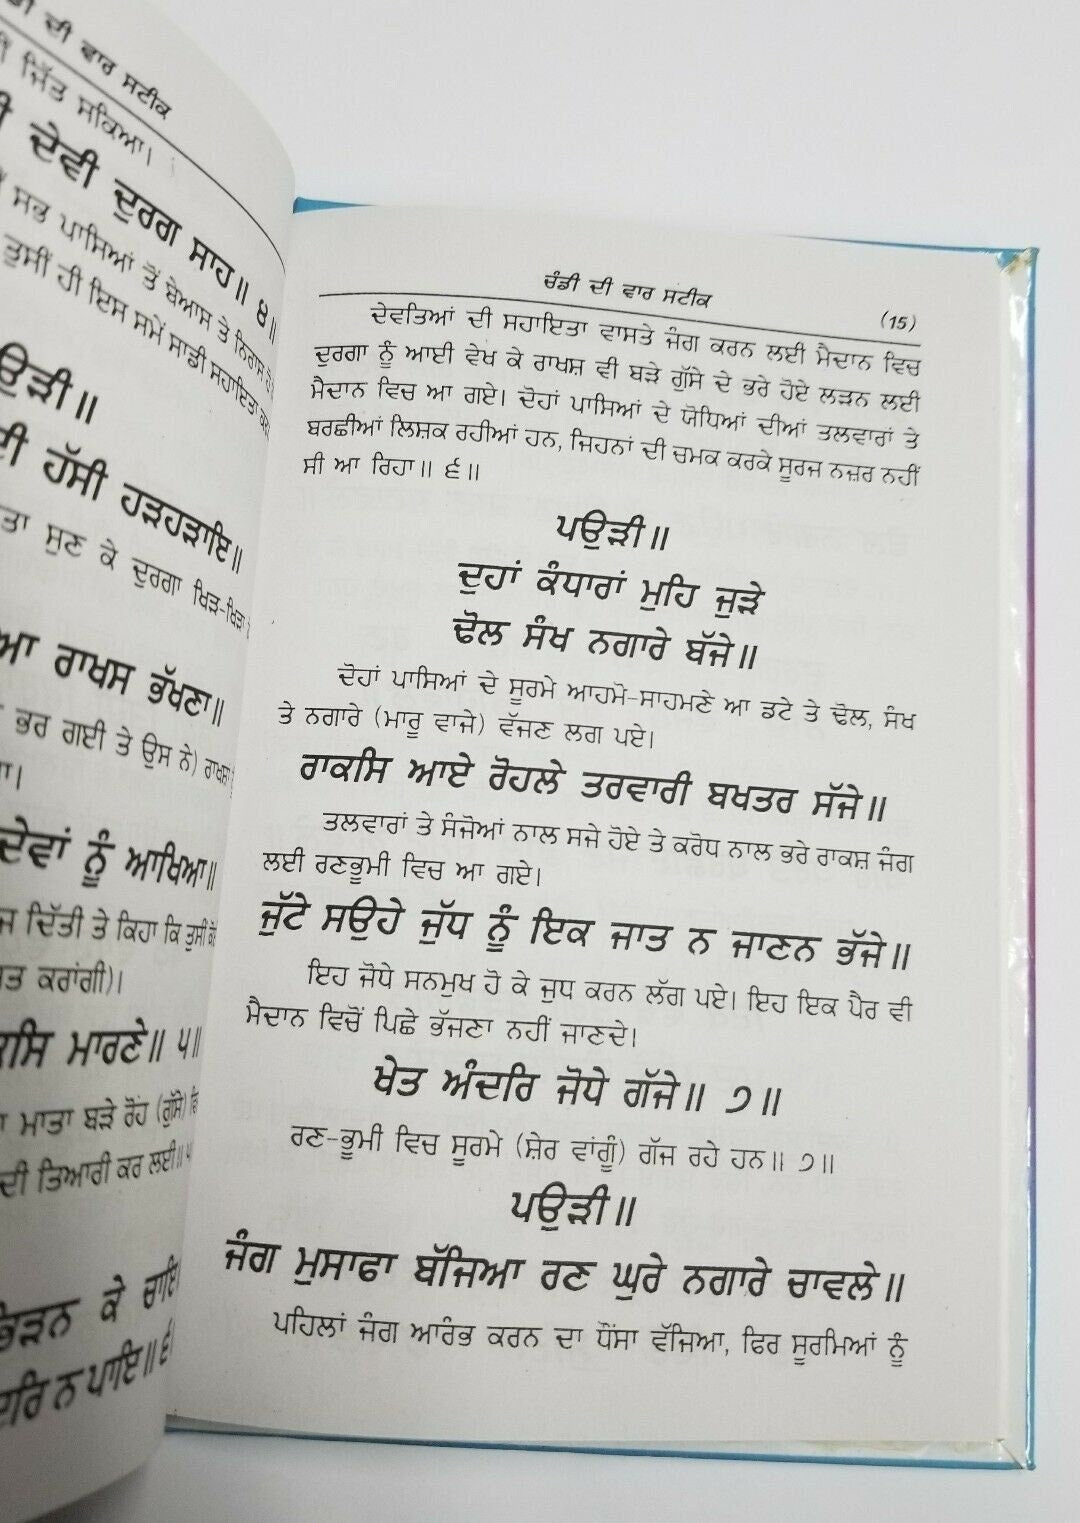 ਦੀ ਵਾਰ ਸਟੀਕ
ਜਿੱਤ ਸਕਿਆ।
ਦੇਵੀ ਦੁਰਗ ਸਾਹ॥ ੪॥
ਸਭ ਪਾਸਿਆਂ ਤੋਂ ਬੇਆਸ ਤੇ ਨਿਰਾਸ
ਤੁਸੀਂ ਹੀ ਇਸ ਸਮੇਂ ਸਾਡੀ ਸਹਾਇਤਾ
ਹੱਸੀ ਹੜਹੜਾਇ॥
ਸੁਣ ਕੇ ਦੁਰਗਾ ਖਿੜ-ਖਿੜਾ
ਰਾਖਸ ਭੱਖਣਾ॥
ਭਰ ਗਈ ਤੇ ਉਸ ਨੇ) ਰਾਖਸ਼ਾਂ
ਦੇਵਾਂ ਨੂੰ ਆਖਿਆ॥
ਦਿੱਤੀ ਤੇ ਕਿਹਾ ਕਿ ਤੁਸੀਂ ਕੋਂ
ਕਰਾਂਗੀ)।
ਮਾਰਣੇ॥ ੫॥
ਮਾਤਾ ਬੜੇ ਰੋਹ (ਗੁੱਸੇ) ਵਿ
ਦੀ ਤਿਆਰੀ ਕਰ ਲਈ॥ ੫
ਭਿੜਨ ਕੇ ਚਾਇ
ਨ ਪਾਇ॥ ੬
ਚੰਡੀ ਦੀ ਵਾਰ ਸਟੀਕ
(15)
ਦੇਵਤਿਆਂ ਦੀ ਸਹਾਇਤਾ ਵਾਸਤੇ ਜੰਗ ਕਰਨ ਲਈ ਮੈਦਾਨ ਵਿਚ
ਦੁਰਗਾ ਨੂੰ ਆਈ ਵੇਖ ਕੇ ਰਾਖਸ਼ ਵੀ ਬੜੇ ਗੁੱਸੇ ਦੇ ਭਰੇ ਹੋਏ ਲੜਨ ਲਈ
ਮੈਦਾਨ ਵਿਚ ਆ ਗਏ। ਦੋਹਾਂ ਪਾਸਿਆਂ ਦੇ ਯੋਧਿਆਂ ਦੀਆਂ ਤਲਵਾਰਾਂ ਤੇ
ਬਰਛੀਆਂ ਲਿਸ਼ਕ ਰਹੀਆਂ ਹਨ, ਜਿਹਨਾਂ ਦੀ ਚਮਕ ਕਰਕੇ ਸੂਰਜ ਨਜ਼ਰ ਨਹੀਂ
ਸੀ ਆ ਰਿਹਾ॥ ੬॥
ਪਉੜੀ॥
ਦੁਹਾਂ ਕੰਧਾਰਾਂ ਮੁਹਿ ਜੁੜੇ
ਢੋਲ ਸੰਖ ਨਗਾਰੇ ਬੱਜੇ॥
ਦੋਹਾਂ ਪਾਸਿਆਂ ਦੇ ਸੂਰਮੇ ਆਹਮੋ-ਸਾਹਮਣੇ ਆ ਡਟੇ ਤੇ ਢੋਲ, ਸੰਖ
ਤੇ ਨਗਾਰੇ (ਮਾਰੂ ਵਾਜੇ) ਵੱਜਣ ਲਗ ਪਏ।
ਰਾਕਸਿ ਆਏ ਰੋਹਲੇ ਤਰਵਾਰੀ ਬਖਤਰ ਸੱਜੇ॥
ਤਲਵਾਰਾਂ ਤੇ ਸੰਜੋਆਂ ਨਾਲ ਸਜੇ ਹੋਏ ਤੇ ਕਰੋਧ ਨਾਲ ਭਰੇ ਰਾਕਸ਼ ਜੰਗ
ਲਈ ਰਣਭੂਮੀ ਵਿਚ ਆ ਗਏ।
ਜੁੱਟੇ ਸਉਹੇ ਜੁੱਧ ਨੂੰ ਇਕ ਜਾਤ ਨ ਜਾਣਨ ਭੱਜੇ॥
ਇਹ ਜੋਧੇ ਸਨਮੁਖ ਹੋ ਕੇ ਜੁਧ ਕਰਨ ਲੱਗ ਪਏ। ਇਹ ਇਕ ਪੈਰ ਵੀ
ਮੈਦਾਨ ਵਿਚੋਂ ਪਿਛੇ ਭੱਜਣਾ ਨਹੀਂ ਜਾਣਦੇ।
ਖੇਤ ਅੰਦਰਿ ਜੋਧੇ ਗੱਜੇ॥ ੭॥
ਰਣ-ਭੂਮੀ ਵਿਚ ਸੂਰਮੇ (ਸ਼ੇਰ ਵਾਂਗੂੰ) ਗੱਜ ਰਹੇ ਹਨ॥ ੭॥
ਪਉੜੀ॥
ਜੰਗ ਮੁਸਾਫਾ ਬੱਜਿਆ ਰਣ ਘੁਰੇ ਨਗਾਰੇ ਚਾਵਲੇ॥
ਪਹਿਲਾਂ ਜੰਗ ਆਰੰਭ ਕਰਨ ਦਾ ਧੌਂਸਾ ਵੱਜਿਆ, ਫਿਰ ਸੂਰਮਿਆਂ ਨੂੰ